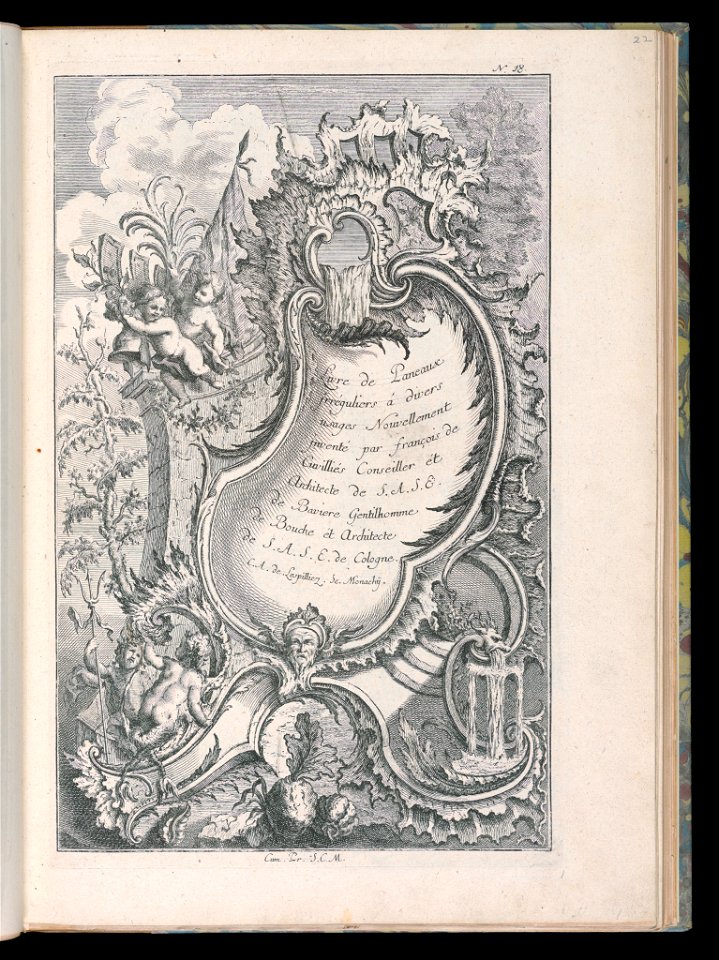 22
N. 18.
Livre de Paneaux
irreguliers á divers
usages Nouvellement
invente par françois de
Cuvilliés Conseiller ét
Architecte de S.A.S.E.
de Baviere Gentilhomme
de Bouche et Architecte
de S.A.S.E. de Cologne.
C.A. de Lespilliez. Sc. Monachÿ.
Cum. Pr. S.C.M.